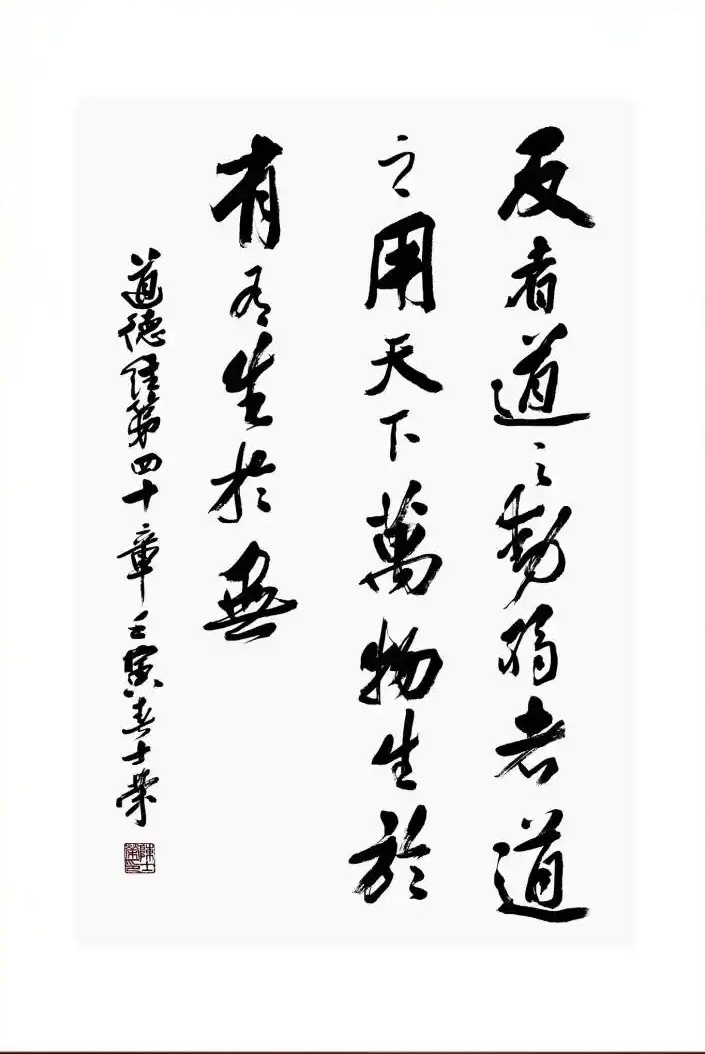 反者道之動弱者道
之用天下萬物生於
有有生於無
道德經第四十章壬寅春士榮
陳士榮印